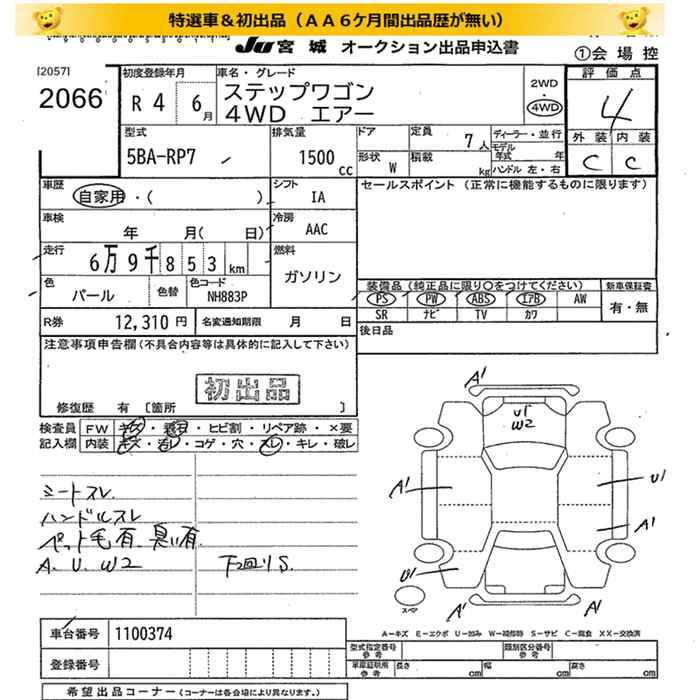 特選車＆初出品（ＡＡ６ケ月間出品歴が無い）
JU 宮城 オークション出品申込書
①会場控
[2057]
2066
初度登録年月
R 4 6月
車名・グレード
ステップワゴン
4WD エアー
2WD
・
4WD
評価点
4
外装 内装
C C
型式
5BA-RP7
排気量
1500 cc
ドア
形状 W
定員 7人
積載 kg
ディーラー・並行
モデル年式 年
ハンドル 左・右
車歴
自家用・( )
シフト IA
セールスポイント（正常に機能するものに限ります）
車検
年 月( 日)
冷房 AAC
走行
6万9千853km
燃料
ガソリン
色 パール
色替
色コード NH883P
装備品（純正品に限り○をつけてください）
PS PW ABS エアB AW
SR ナビ TV カワ
新車保証書
有・無
R券 12,310円
名変通知期限 月 日
後日品
注意事項申告欄（不具合内容等は具体的に記入して下さい）
初出品
修復歴 有 〔箇所 〕
検査員記入欄
FW キズ・飛石・ヒビ割・リペア跡・×要
内装 キズ・汚レ・コゲ・穴・スレ・キレ・破レ
シートスレ
ハンドルスレ
ペット毛有、臭い有
A、U、W2
下回りS
A1
U1
W2
A1
U1
A1
U1
A1
A1
スペア
A－キズ E－エクボ U－凹み W－補修跡 S－サビ C－腐食 XX－交換済
車台番号 1100374
登録番号
型式指定番号 参考
類別区分番号 参考
車庫証明用 参考
長さ cm 幅 cm 高さ cm
希望出品コーナー（コーナーは各会場により異なります。）